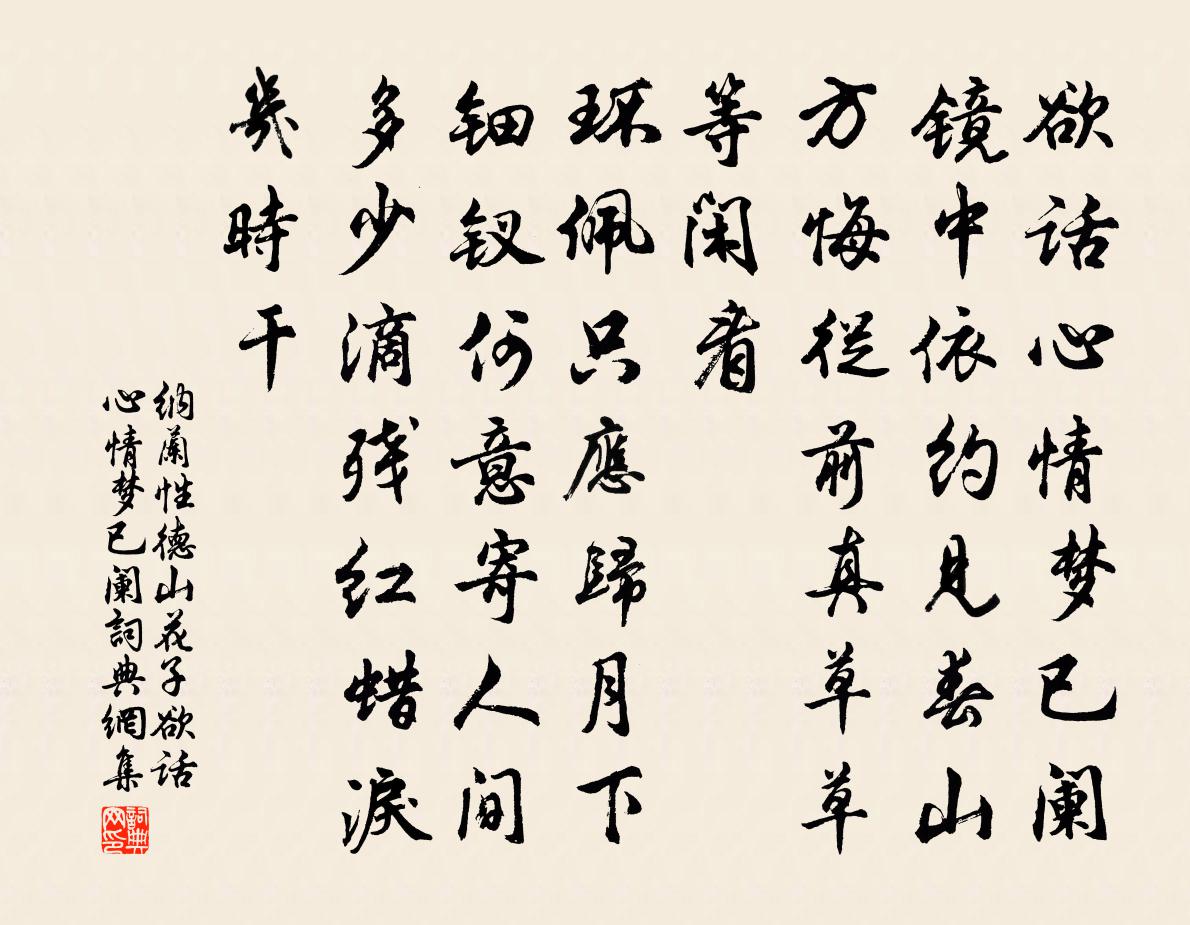 欲话心情梦已阑
镜中依约见春山
方悔從前真草草
等闲看
环佩只應歸月下
钿钗何意寄人间
多少滴残红蜡淚
幾時干
纳蘭性德山花子欲话
心情梦已阑詞典網集
詞典
网印